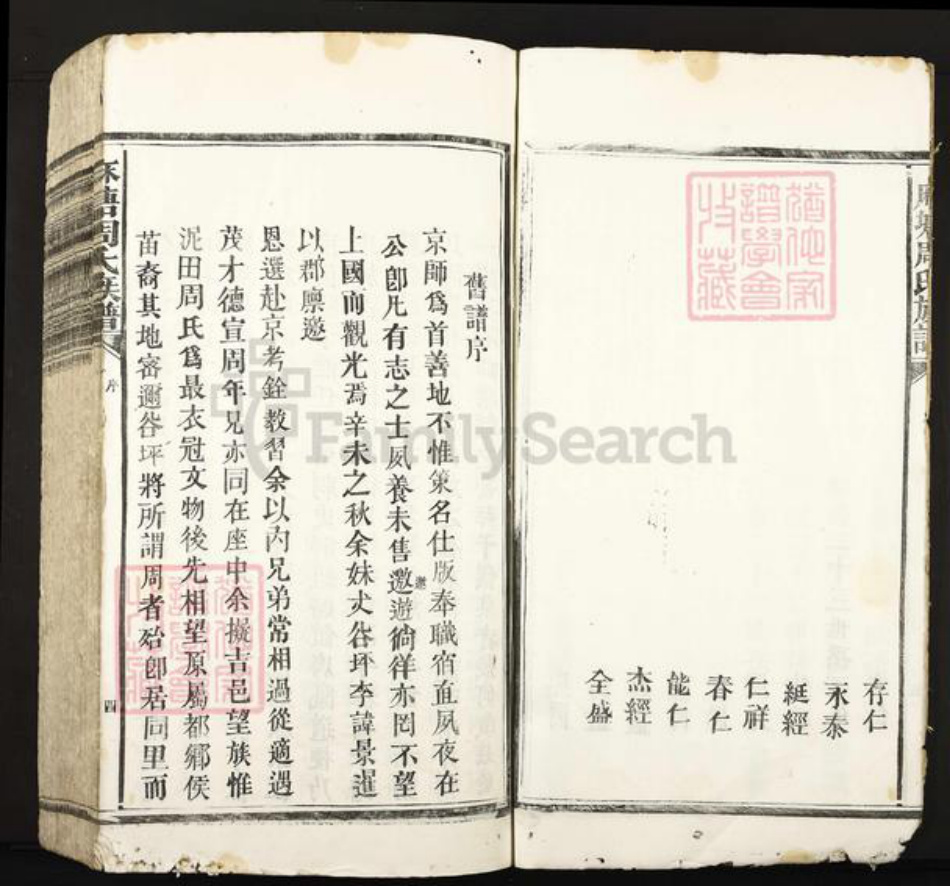 存仁
永泰
綎經
仁祥
春仁
能仁
杰經
全盛
周氏族譜
舊譜序
京師爲首善地不惟策名仕版奉職宿直夙夜在
公卽凡有志之士夙養未售邀遊徜徉亦罔不望
遨
上國而觀光焉辛未之秋余妹丈谷坪李諱景暹
以郡廩邀
恩選赴京考銓教習余以內兄弟常相過從適遇
茂才德宣周年兄亦同在座中余擬吉邑望族惟
泥田周氏爲最衣冠文物後先相望原屬都鄉侯
苗裔其地密邇谷坪將所謂周者殆卽居同里而
周氏族譜
序
四
譜學會
收藏
FamilySearch